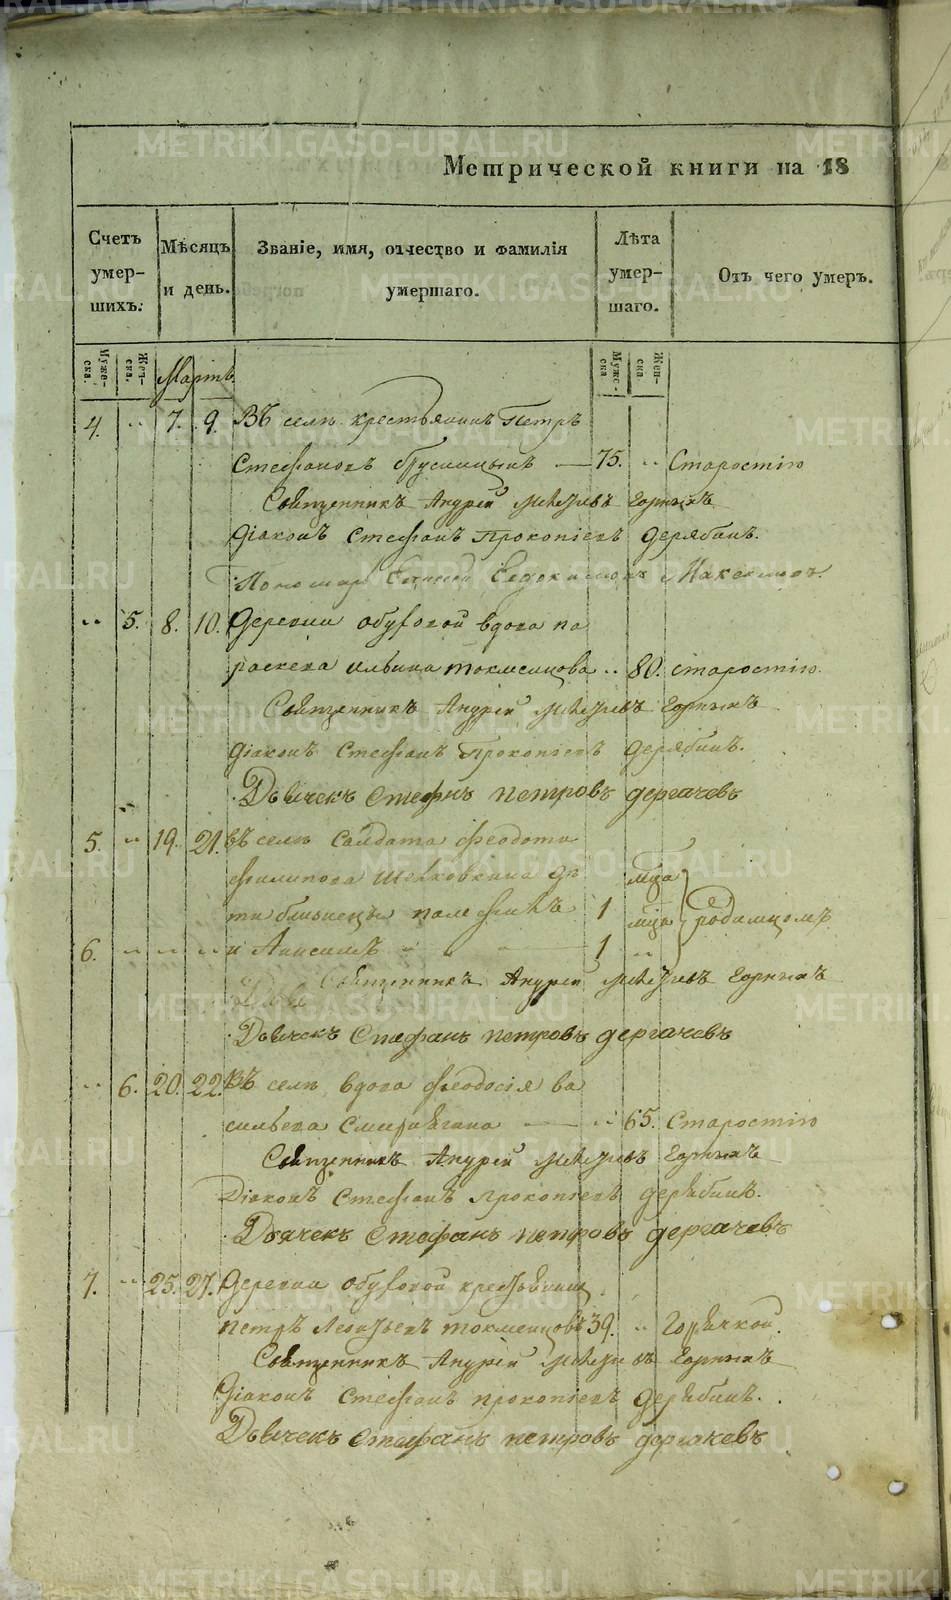 Метрической книги на 18
Счетъ умер-шихъ.
Мѣсяцъ и день.
Званіе, имя, отчество и фамилія умершаго.
Лѣта умер-шаго.
Отъ чего умеръ.
Муже-ска. Жен-ска. Мартъ. Муже-ска Жен-ска
4. .. 7. 9. Въ селѣ крестьянинъ Петръ
Стефановъ Брусницынъ — 75. .. Старостію
Священникъ Андрей Горныхъ
Діаконъ Стефанъ Прокопіевъ Дерябинъ.
Пономарь Евдокимовъ Максимовъ.
.. 5. 8. 10. Деревни Обуховой вдова Па
раскева Ильина Токменцова .. 80. старостію.
Священникъ Андрей Горныхъ
Діаконъ Стефанъ Прокопіевъ Дерябинъ.
Дьячекъ Стефнъ петровъ дергачевъ
5. .. 19. 21. въ селѣ Солдата Феодота
Филипова дѣ мца
ти близнецы 1 мца родимцомъ
6. .. .. .. и Анисимъ — 1 ..
Священникъ Андрей Горныхъ
Дьячекъ Стефанъ петровъ дергачевъ
.. 6. 20. 22. Въ селѣ вдова Феодосія Ва
сильева — .. 65. Старостію
Священникъ Андрей Горныхъ
Діаконъ Стефанъ Прокопіевъ Дерябинъ.
Дьячекъ Стефанъ петровъ дергачевъ
7. .. 25. 27. Деревни Обуховой крестьянинъ
петръ Леонтьевъ токменцовъ 39. .. Горячкой.
Священникъ Андрей Горныхъ
Діаконъ Стефанъ Прокопіевъ Дерябинъ.
Дьячекъ Стефанъ петровъ дергачевъ
METRIKI.GASO-URAL.RU